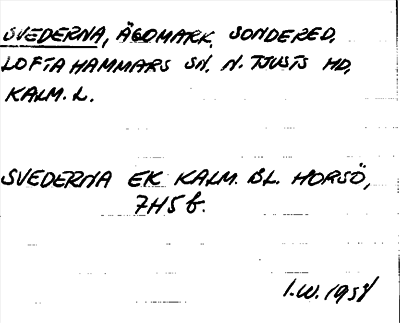 SVEDERNA, ÄGOMARK, SONDERED,
LOFTAHAMMARS SN. N. TJUSTS HD,
KALM. L.
SVEDERNA EK KALM. BL. HORSÖ,
7H5f.
I.W. 1958